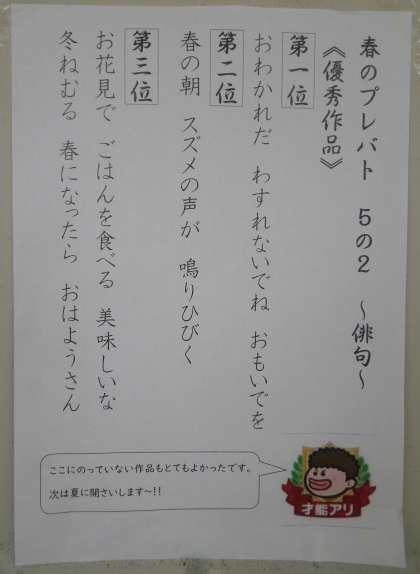 春のプレバト 5の2 ～俳句～
《優秀作品》
第一位
おわかれだ わすれないでね おもいでを
第二位
春の朝 スズメの声が 鳴りひびく
第三位
お花見で ごはんを食べる 美味しいな
冬ねむる 春になったら おはようさん
ここにのっていない作品もとてもよかったです。
次は夏に開さいします～!!
才能アリ